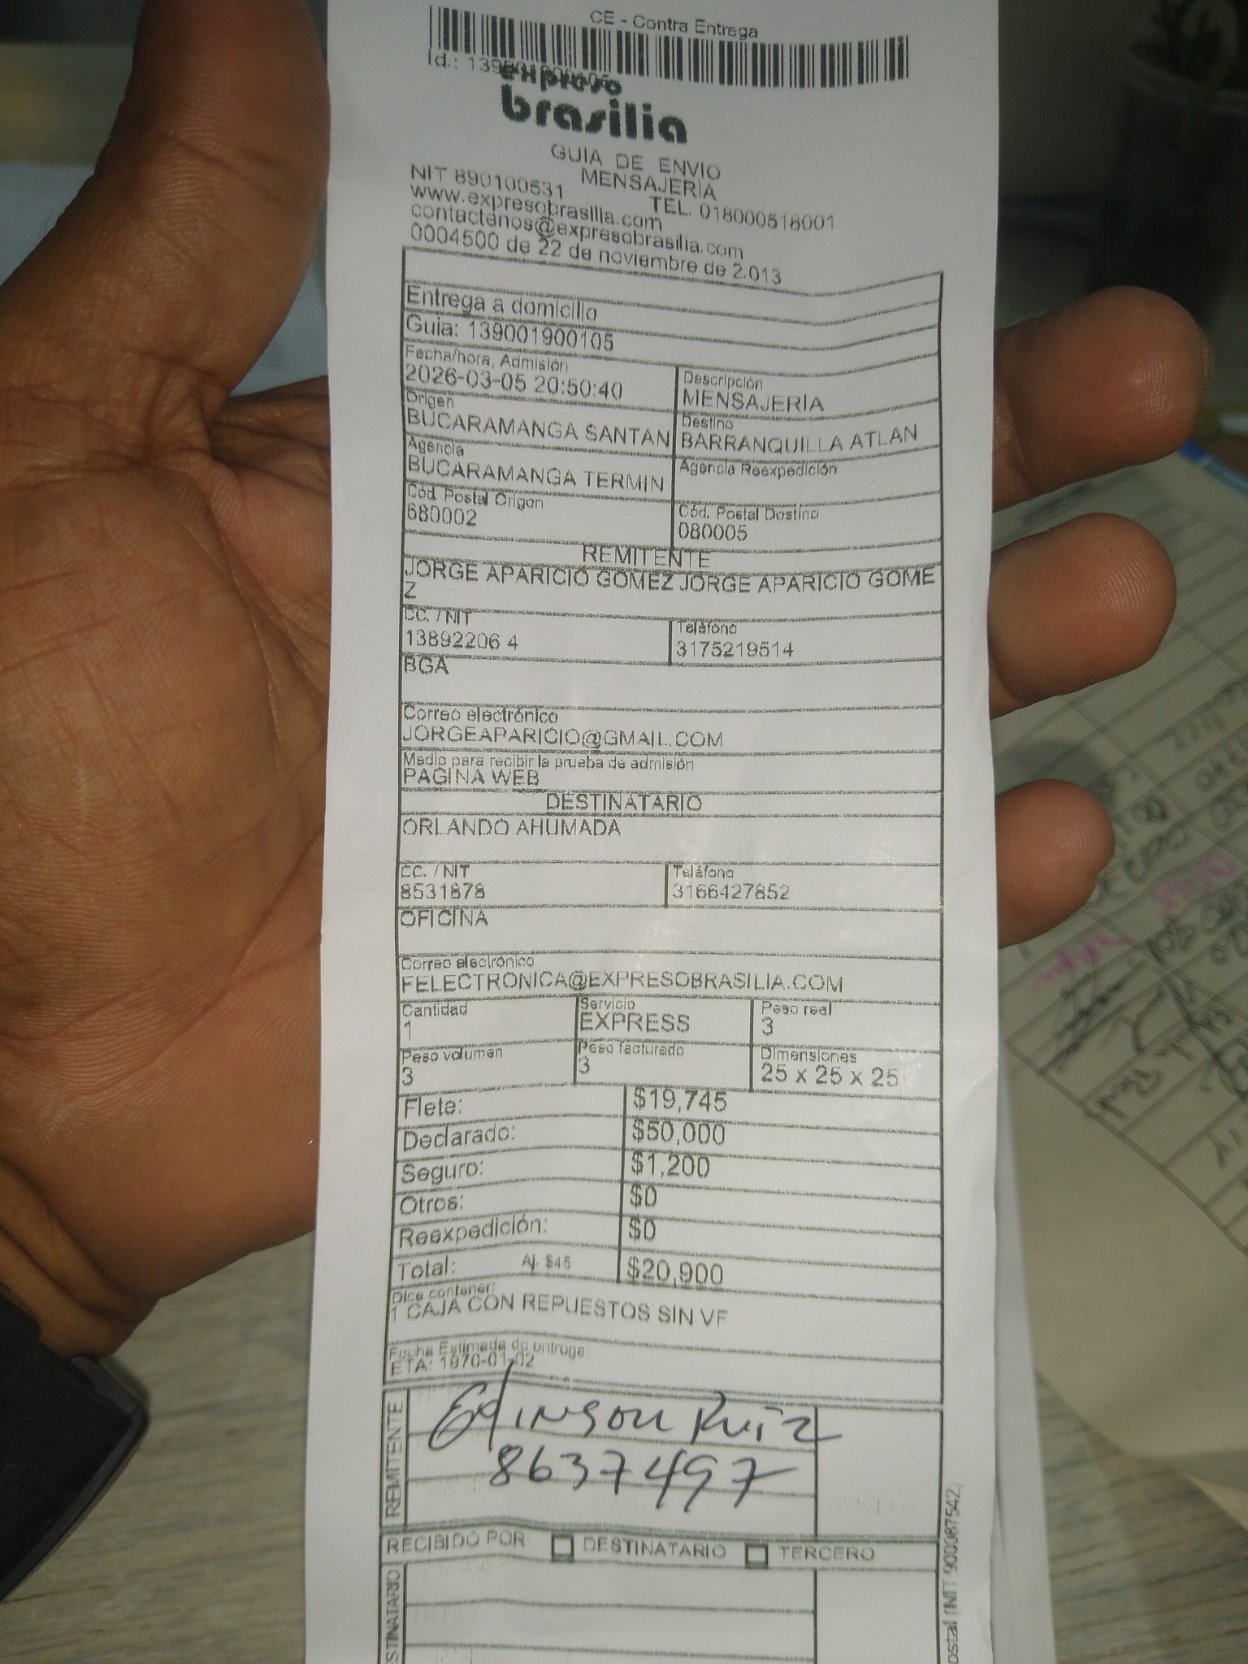 CE - Contra Entrega
Id.: 139001900105
expreso
brasilia
GUIA DE ENVIO
MENSAJERÍA
NIT 890100531 TEL. 018000518001
www.expresobrasilia.com
contactenos@expresobrasilia.com
0004500 de 22 de noviembre de 2.013
Entrega a domicilio
Guia: 139001900105
Fecha/hora, Admisión Descripción
2026-03-05 20:50:40 MENSAJERÍA
Origen Destino
BUCARAMANGA SANTAN BARRANQUILLA ATLAN
Agencia Agencia Reexpedición
BUCARAMANGA TERMIN
Cód. Postal Origen Cód. Postal Destino
680002 080005
REMITENTE
JORGE APARICIO GOMEZ JORGE APARICIO GOME
Z
CC. / NIT Teléfono
13892206 4 3175219514
BGA
Correo electrónico
JORGEAPARICIO@GMAIL.COM
Medio para recibir la prueba de admisión
PAGINA WEB
DESTINATARIO
ORLANDO AHUMADA
CC. / NIT Teléfono
8531878 3166427852
OFICINA
Correo electrónico
FELECTRONICA@EXPRESOBRASILIA.COM
Cantidad Servicio Peso real
1 EXPRESS 3
Peso volumen Peso facturado Dimensiones
3 3 25 x 25 x 25
Flete: $19,745
Declarado: $50,000
Seguro: $1,200
Otros: $0
Reexpedición: $0
Total: Aj. $45 $20,900
Dice contener:
1 CAJA CON REPUESTOS SIN VF
Fecha Estimada de entrega:
ETA: 1970-01-02
REMITENTE
Edinson Ruiz
8637497
RECIBIDO POR: DESTINATARIO TERCERO
STINATARIO
ostal (NIT 900087542)